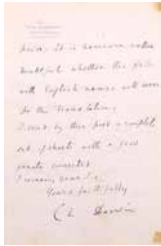 price. It is however rather
doubtful whether the
with English names will even
do the translation,
I send by this post a complete
set of sheets with a few
errata corrected
I remain, dear Sir,
Yours faithfully
Ch. Darwin